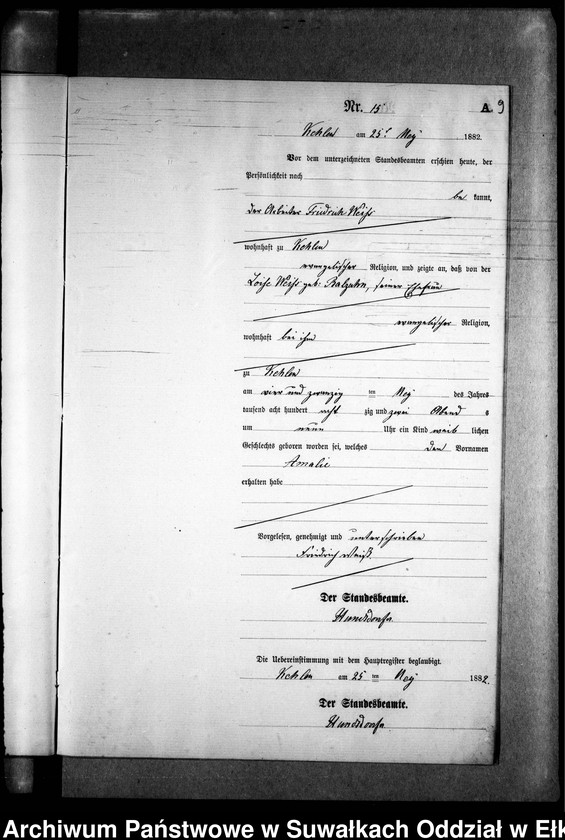 Nr. 15 A. 9
Kehlen am 25t Maj 1882.
Vor dem unterzeichneten Standesbeamten erschien heute, der
Persönlichkeit nach
be kannt,
der Arbeiter Friedrich Weiß
wohnhaft zu Kehlen
evangelischer Religion, und zeigte an, daß von der
Weiß geb: seiner Ehefrau
evangelischer Religion,
wohnhaft bei ihm
zu Kehlen
am vier und zwanzig ten Maj des Jahres
tausend acht hundert acht zig und zwei Abend s
um neun Uhr ein Kind weib lichen
Geschlechts geboren worden sei, welches den Vornamen
Amalie
erhalten habe
Vorgelesen, genehmigt und unterschrieben
Friedrich Weiß
Der Standesbeamte.
Die Uebereinstimmung mit dem Hauptregister beglaubigt.
Kehlen am 25 ten Maj 1882.
Der Standesbeamte.
Archiwum Państwowe w Suwałkach Oddział w Ełk